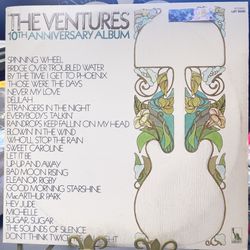 THE VENTURES
10TH ANNIVERSARY ALBUM
SPINNING WHEEL
BRIDGE OVER TROUBLED WATER
BY THE TIME I GET TO PHOENIX
THOSE WERE THE DAYS
NEVER MY LOVE
DELILAH
STRANGERS IN THE NIGHT
EVERYBODY'S TALKIN'
RAINDROPS KEEP FALLIN' ON MY HEAD
BLOWIN' IN THE WIND
WHO'LL STOP THE RAIN
SWEET CAROLINE
LET IT BE
UP-UP AND AWAY
BAD MOON RISING
ELEANOR RIGBY
GOOD MORNING STARSHINE
MacARTHUR PARK
HEY JUDE
MICHELLE
SUGAR, SUGAR
THE SOUNDS OF SILENCE
DON'T THINK TWICE